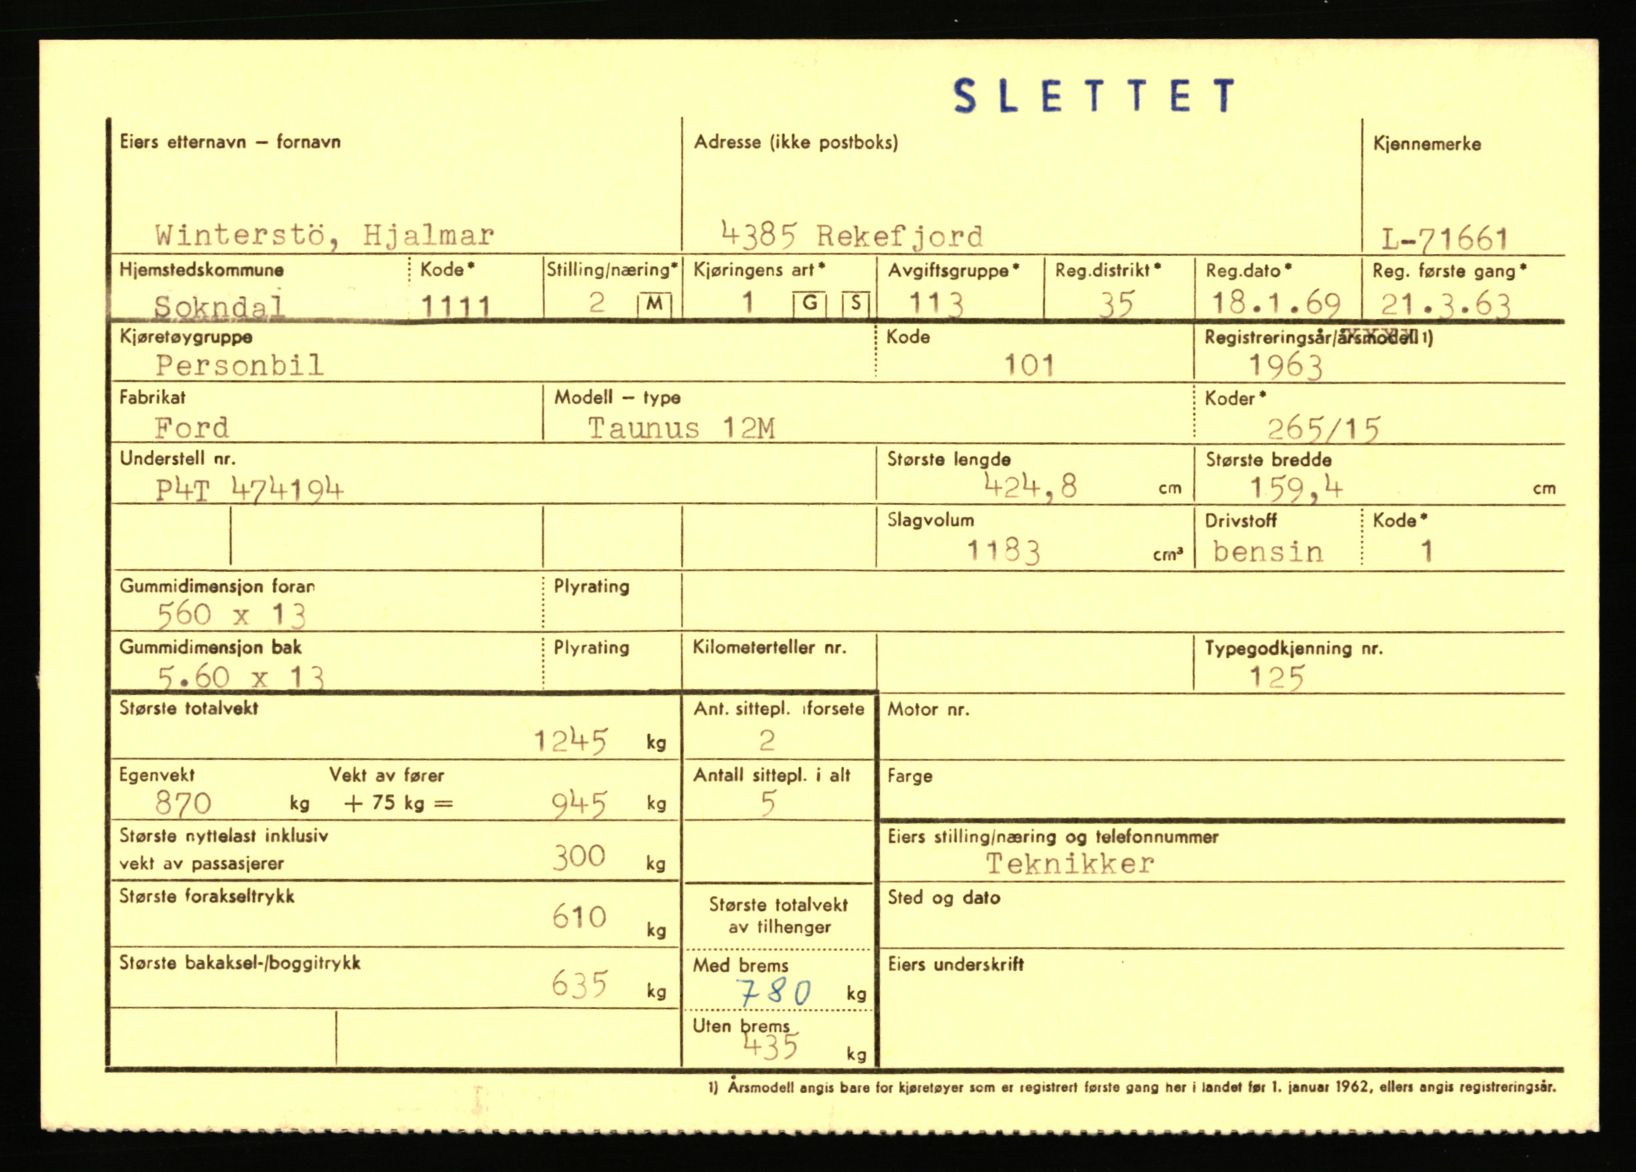 SLETTET
Eiers etternavn – fornavn Adresse (ikke postboks) Kjennemerke
Winterstö, Hjalmar 4385 Rekefjord L-71661
Hjemstedskommune Kode* Stilling/næring* Kjøringens art* Avgiftsgruppe* Reg.distrikt* Reg.dato* Reg. første gang*
Sokndal 1111 2 M 1 G S 113 35 18.1.69 21.3.63
Kjøretøygruppe Kode Registreringsår/årsmodell 1)
Personbil 101 1963
Fabrikat Modell – type Koder*
Ford Taunus 12M 265/15
Understell nr. Største lengde Største bredde
P4T 474194 424,8 cm 159,4 cm
Slagvolum Drivstoff Kode*
1183 cm³ bensin 1
Gummidimensjon foran Plyrating
560 x 13
Gummidimensjon bak Plyrating Kilometerteller nr. Typegodkjenning nr.
5.60 x 13 125
Største totalvekt Ant. sittepl. i forsete Motor nr.
1245 kg 2
Egenvekt Vekt av fører Antall sittepl. i alt Farge
870 kg + 75 kg = 945 kg 5
Største nyttelast inklusiv Eiers stilling/næring og telefonnummer
vekt av passasjerer 300 kg Teknikker
Største forakseltrykk Største totalvekt Sted og dato
610 kg av tilhenger
Største bakaksel-/boggitrykk Med brems Eiers underskrift
635 kg 780 kg
Uten brems
435 kg
1) Årsmodell angis bare for kjøretøyer som er registrert første gang her i landet før 1. januar 1962, ellers angis registreringsår.